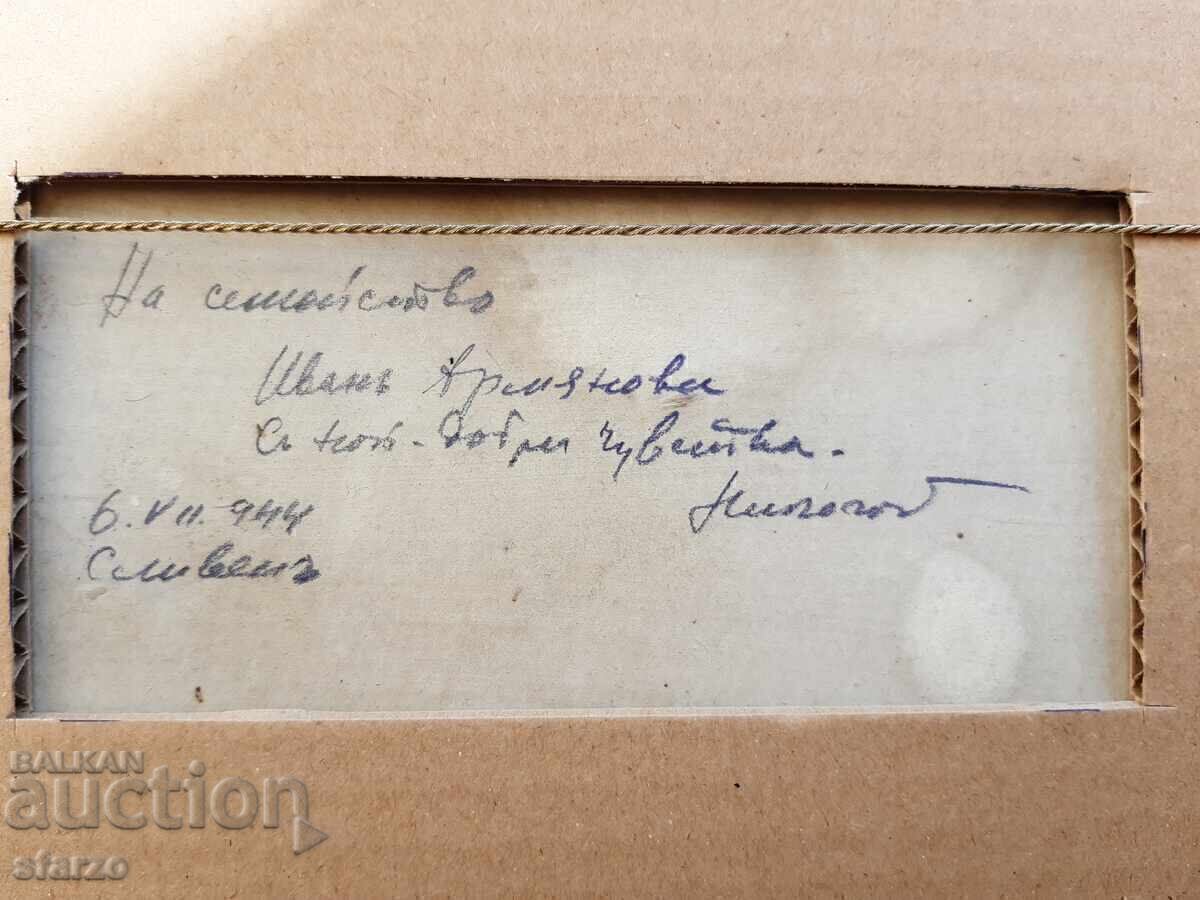 На семейство
Иванъ Армянови
Съ най-добри чувства.
6. VII. 944
Сливенъ
BALKAN
auction
sfarzo